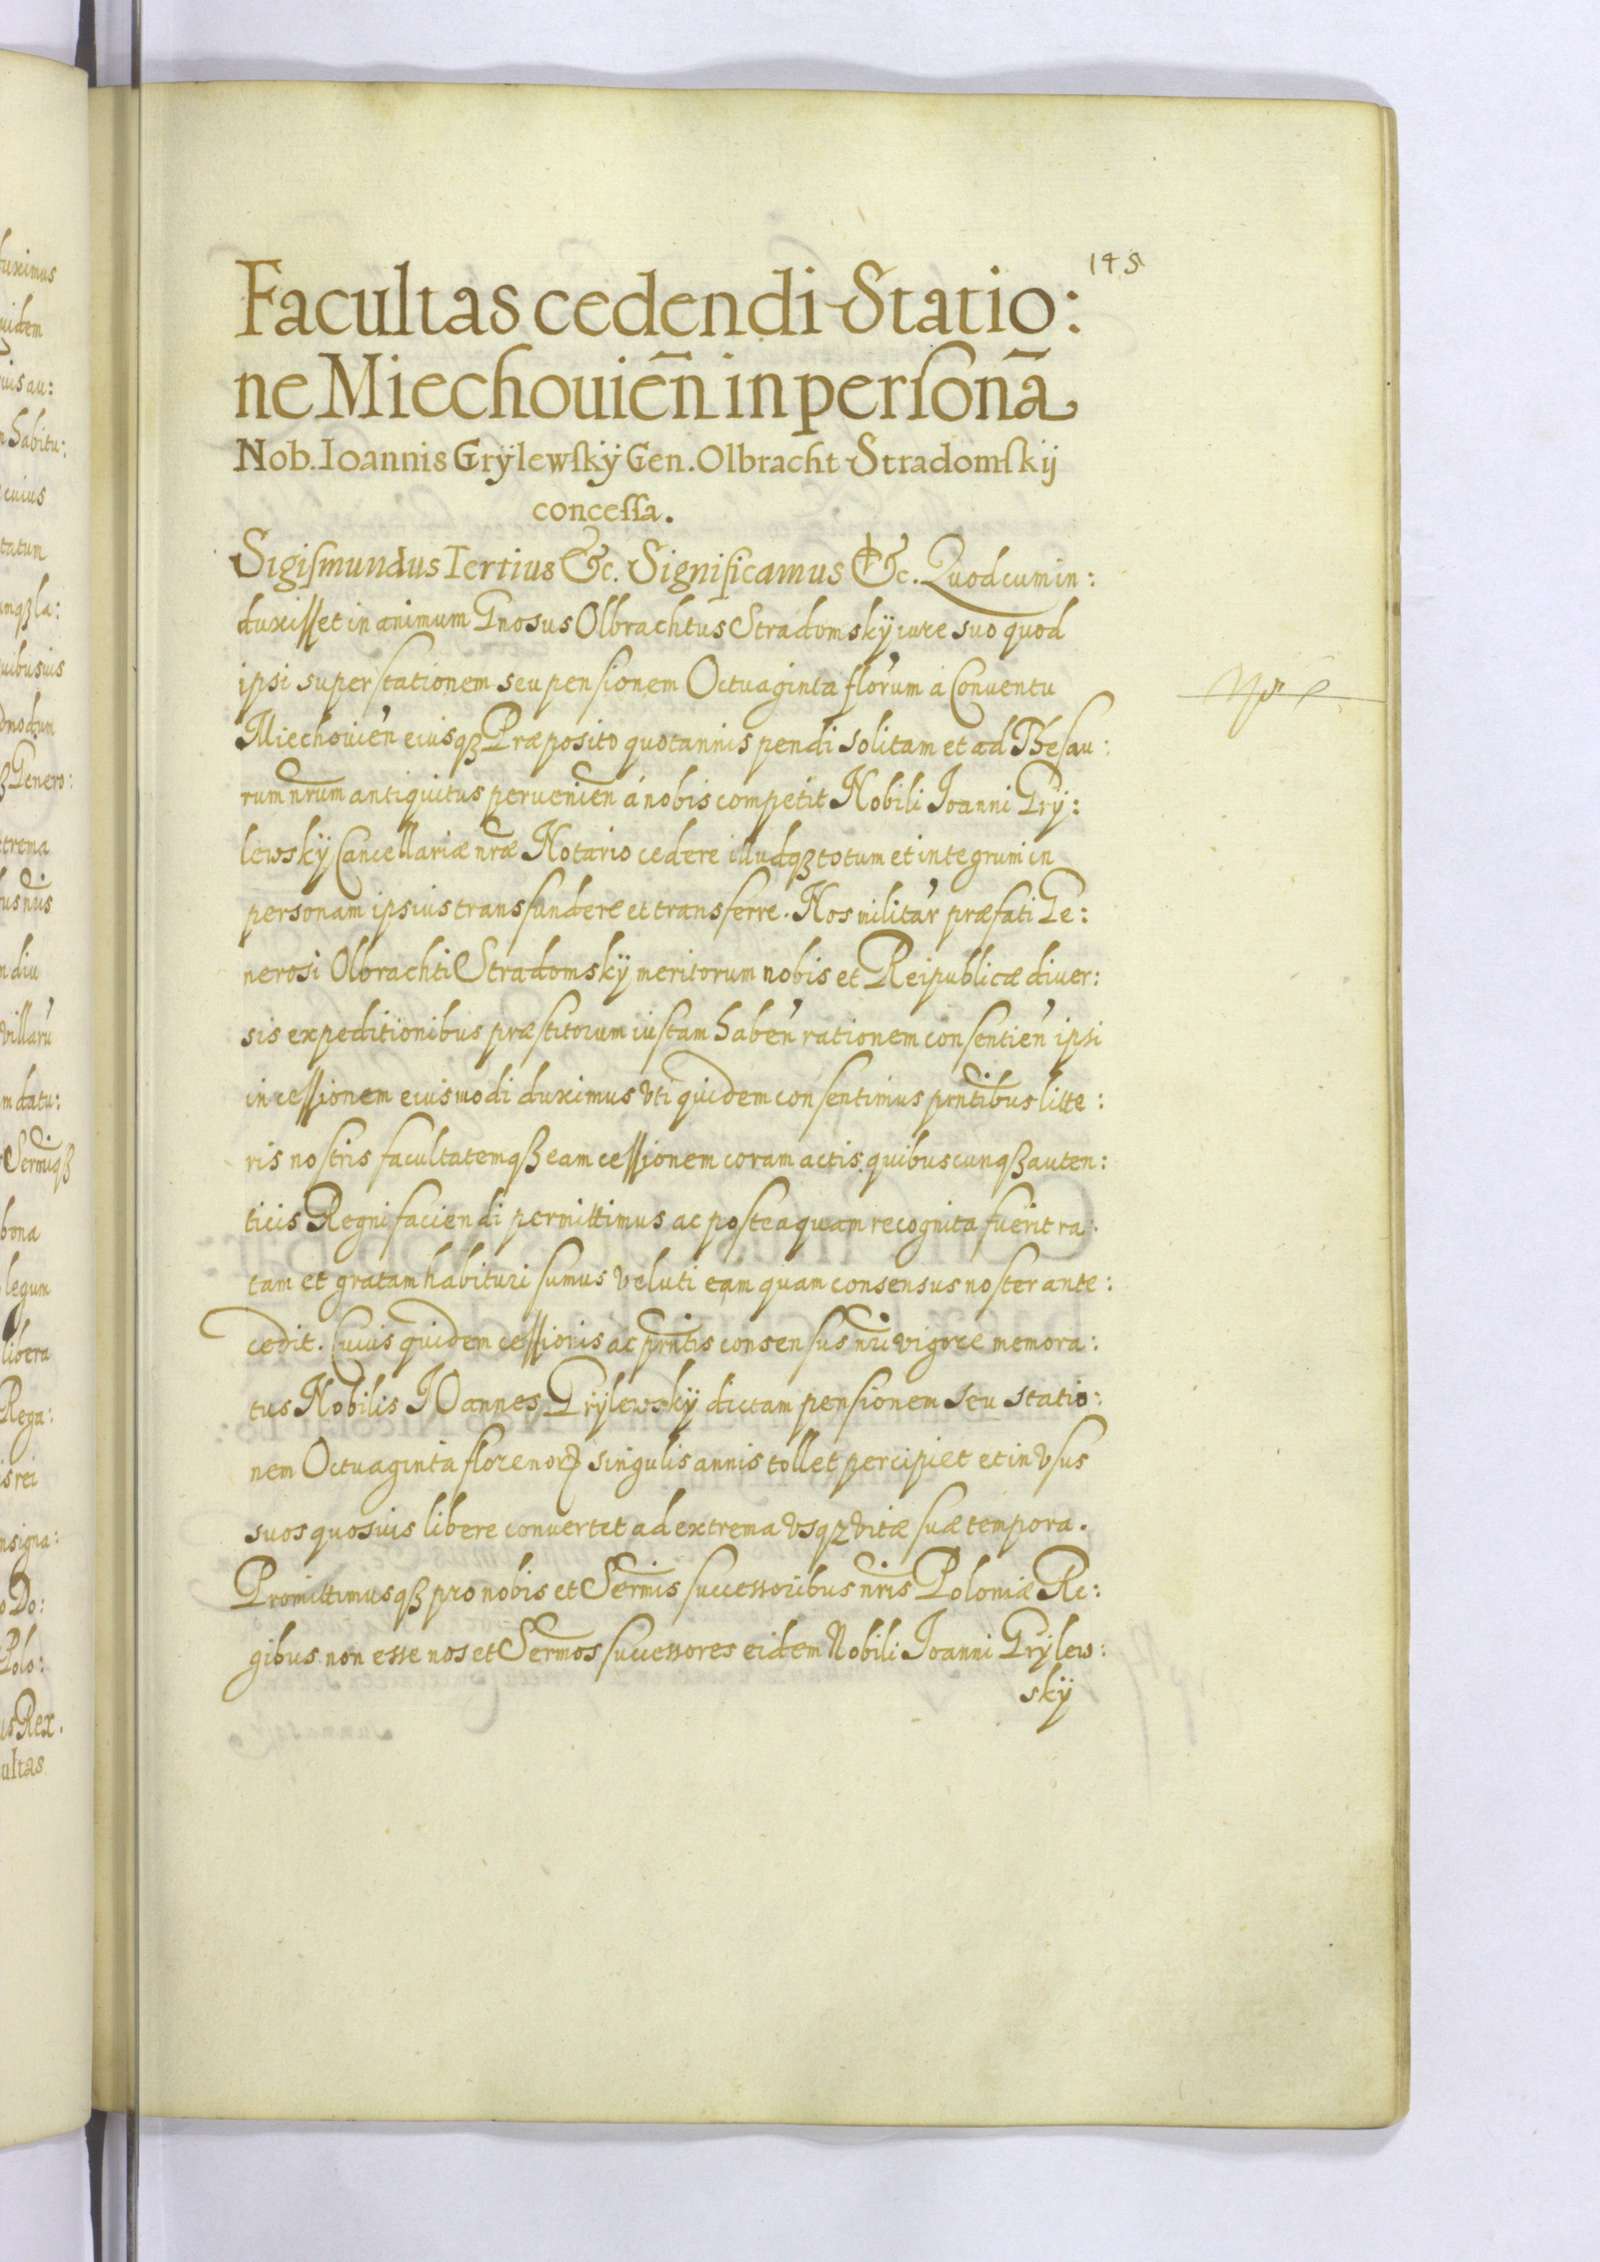 145
Facultas cedendi Statio:
ne Miechouień in personā
Nob. Ioannis Grÿlewskÿ Gen. Olbracht Stradomskij
concessa.
Sigismundus Tertius &c. Significamus &c. Quod cum in:
duxisset in animum Gnosus Olbrachtus Stradomskÿ iure suo quod
ipsi super stationem seu pensionem Octuaginta flor'um à Conuentu
Miechouien' eiusqȝ Præposito quotannis pendi solitam et ad Thesau:
rum nrum antiquitus peruenien à nobis competit Nobili Joanni Grÿ:
lewskÿ Cancellariæ nræ Notario cedere illudqȝ totum et integrum in
personam ipsius transfundere et transferre. Nos militar' præfati Ge:
nerosi Olbrachti Stradomskÿ meritorum nobis et Reipublicæ diuer:
sis expeditionibus præstitorum iustam haben' rationem consentien' ipsi
in cessionem eiusmodi duximus vti quidem consentimus prntibus litte:
ris nostris facultatemqȝ eam cessionem coram actis quibuscunqȝ auten:
ticis Regni faciendi permittimus ac posteaquam recognita fuerit ra:
tam et gratam habituri sumus veluti eam quam consensus noster ante:
cedit. Cuius quidem cessionis ac prntis consensus nri vigore memora:
tus Nobilis JOannes Grÿlewskÿ dictam pensionem seu statio:
nem Octuaginta florenorꝝ singulis annis tollet percipiet et in vsus
suos quosuis libere conuertet ad extrema vsqȝ vitæ suæ tempora.
Promittimusqȝ pro nobis et Sermis successoribus nris Poloniæ Re:
gibus non esse nos et Sermos successores eidem Nobili Joanni Grÿlew:
skÿ